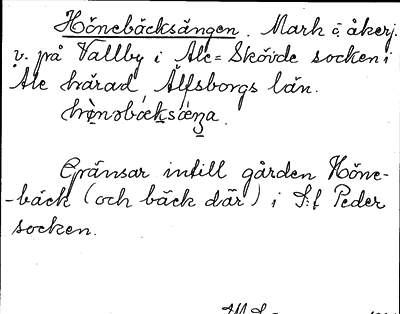 Hönebäcksängen. Mark o. åkerj.
v. på Vallby i Ale-Skövde socken i
Ale härad, Älfsborgs län.
Gränsar intill gården Höne-
-bäck (och bäck där) i S:t Peder
socken.